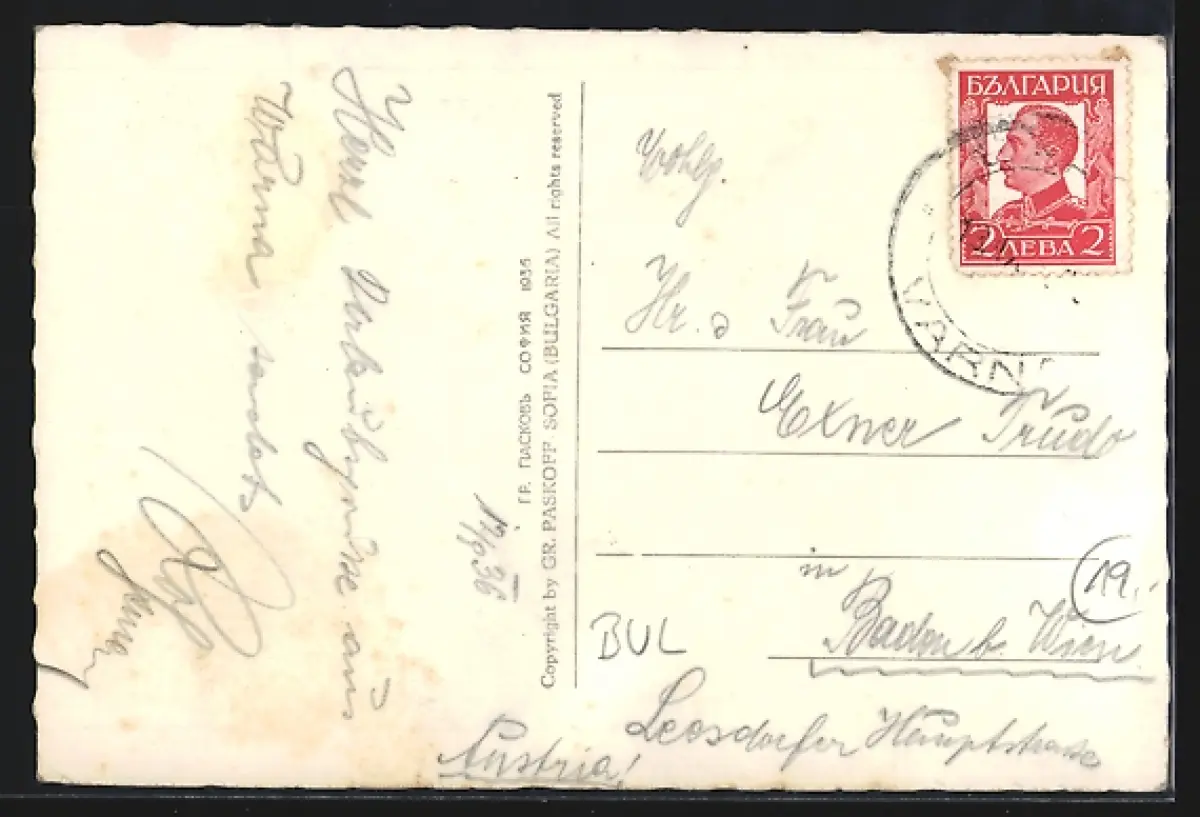 Herzl
aus
Warna sendet
17/9 36
ГР. ПАСКОВЪ СОФИЯ 1935
Copyright by GR. PASKOFF. SOFIA (BULGARIA) All rights reserved
БЪЛГАРИЯ
2 ЛЕВА 2
VARN
Wohlg.
Hr. Frau
Exner Trude
in
Baden b. Wien
19.-
BUL
Leesdorfer Hauptstrasse
Austria!